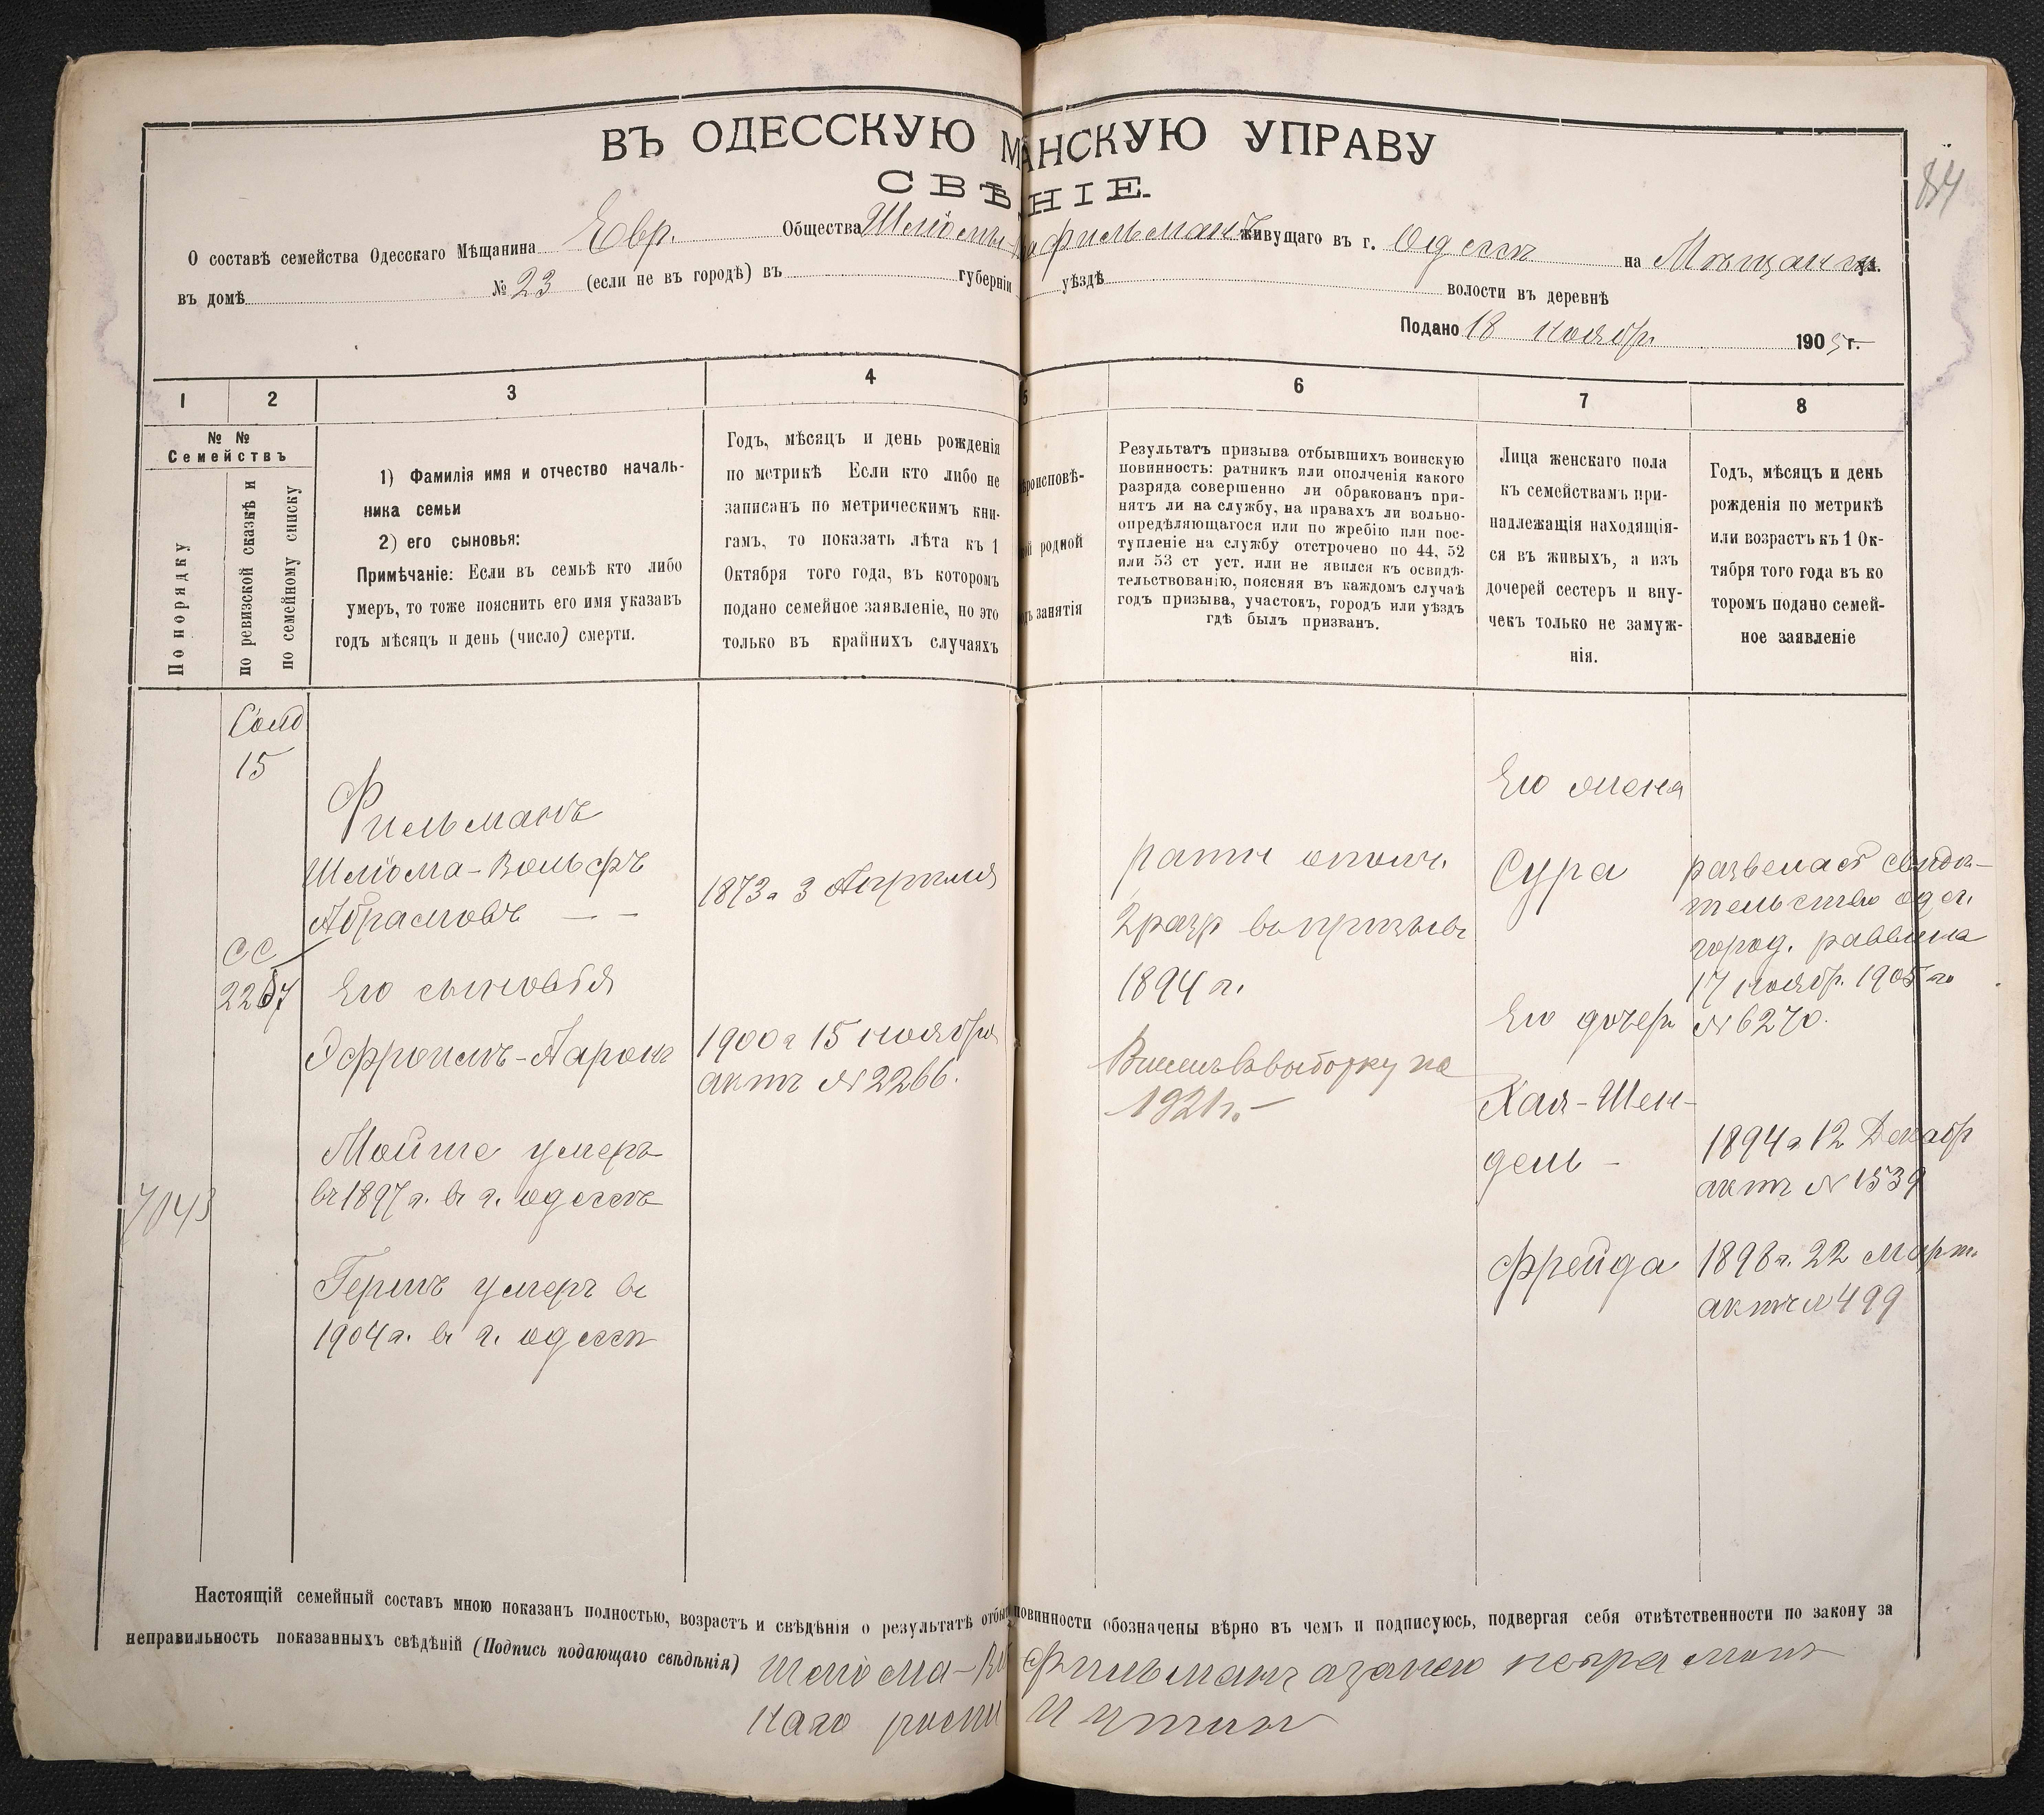 84
ВЪ ОДЕССКУЮ М АНСКУЮ УПРАВУ
СВѢ НІЕ.
О составѣ семейства Одесскаго Мѣщанина Евр. Общества Шлiомы- Фильманъ живущаго въ г. Одессѣ на Мѣщанск ул.
въ домѣ № 23 (если не въ городѣ) въ губерніи уѣздѣ волости въ деревнѣ
Подано 18 ноябр. 1905 г.
1 2 3 4 5 6 7 8
№ №
Семействъ
По порядку
по ревизской сказкѣ и
по семейному списку
1) Фамилія имя и отчество началь-
ника семьи
2) его сыновья:
Примѣчаніе: Если въ семьѣ кто либо
умеръ, то тоже пояснить его имя указавъ
годъ мѣсяцъ и день (число) смерти.
Годъ, мѣсяцъ и день рожденія
по метрикѣ Если кто либо не
записанъ по метрическимъ кни-
гамъ, то показать лѣта къ 1
Октября того года, въ которомъ
подано семейное заявленіе, но это
только въ крайнихъ случаяхъ
роисповѣ-
родной
занятія
Результатъ призыва отбывшихъ воинскую
повинность: ратникъ или ополченія какого
разряда совершенно ли обракованъ при-
нятъ ли на службу, на правахъ ли вольно-
опредѣляющагося или по жребію или пос-
тупленіе на службу отстрочено по 44, 52
или 53 ст уст. или не явился къ освидѣ-
тельствованію, поясняя въ каждомъ случаѣ
годъ призыва, участокъ, городъ или уѣздъ
гдѣ былъ призванъ.
Лица женскаго пола
къ семействамъ при-
надлежащія находящія-
ся въ живыхъ, а изъ
дочерей сестеръ и вну-
чекъ только не замуж-
нія.
Годъ, мѣсяцъ и день
рожденія по метрикѣ
или возрастъ къ 1 Ок-
тября того года въ ко
торомъ подано семей-
ное заявленіе
Солд
15
СС
2267
7043
Фильманъ
Шліома-Вольфъ
Абрамовъ — —
Его сыновья
Эфроимъ-Ааронъ
Мойше умеръ
въ 1897 г. въ г. одессѣ
Гершъ умеръ въ
1904 г. въ г. одессѣ
1873 г 3 Апреля
1900 г 15 ноября
актъ № 2266.
ратн ополч.
2 разр въ призывъ
1894 г.
выборку на
1921 г.
Его жена
Сура
Его дочери
Хая-Шен-
дель -
Фрейда
развелас свидѣ-
тельство одес.
город. раввина
17 ноябр. 1905 го
№ 6270.
1894 г 12 Декабр
актъ № 1539
1898 г. 22 март.
актъ № 499
Настоящій семейный составъ мною показанъ полностью, возрастъ и свѣдѣнія о результатѣ отбы повинности обозначены вѣрно въ чемъ и подписуюсь, подвергая себя отвѣтственности по закону за
неправильность показанныхъ свѣдѣній (Подпись подающаго свѣдѣнія) Шліома-В Фильманъ а за него неграмот
наго роспи